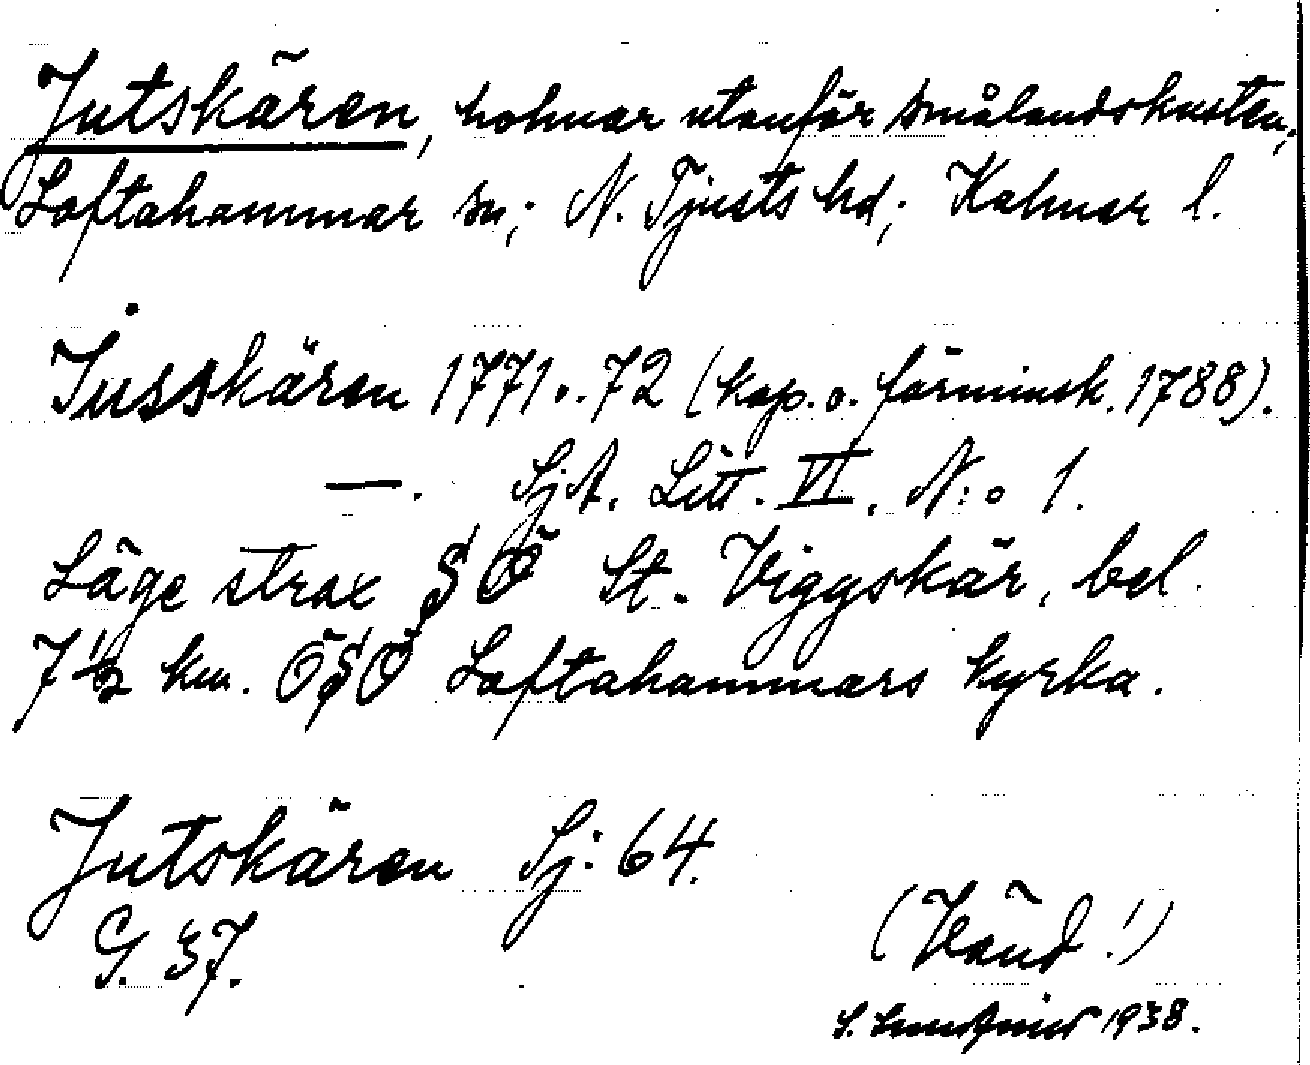 Jutskären, holmar utanför Smålandskusten;
Loftahammar sn; N. Tjusts hd; Kalmar l.
Jusskären 1771 o. 72 (kop. o. förminsk. 1788).
—. SjA. Litt. VI. N:o 1.
Läge strax SÖ St. Viggskär, bel.
7 1/2 km. ÖSÖ Loftahammars kyrka.
Jutskären Sj: 64.
G. 37.
(Vänd!)
S. 1938.